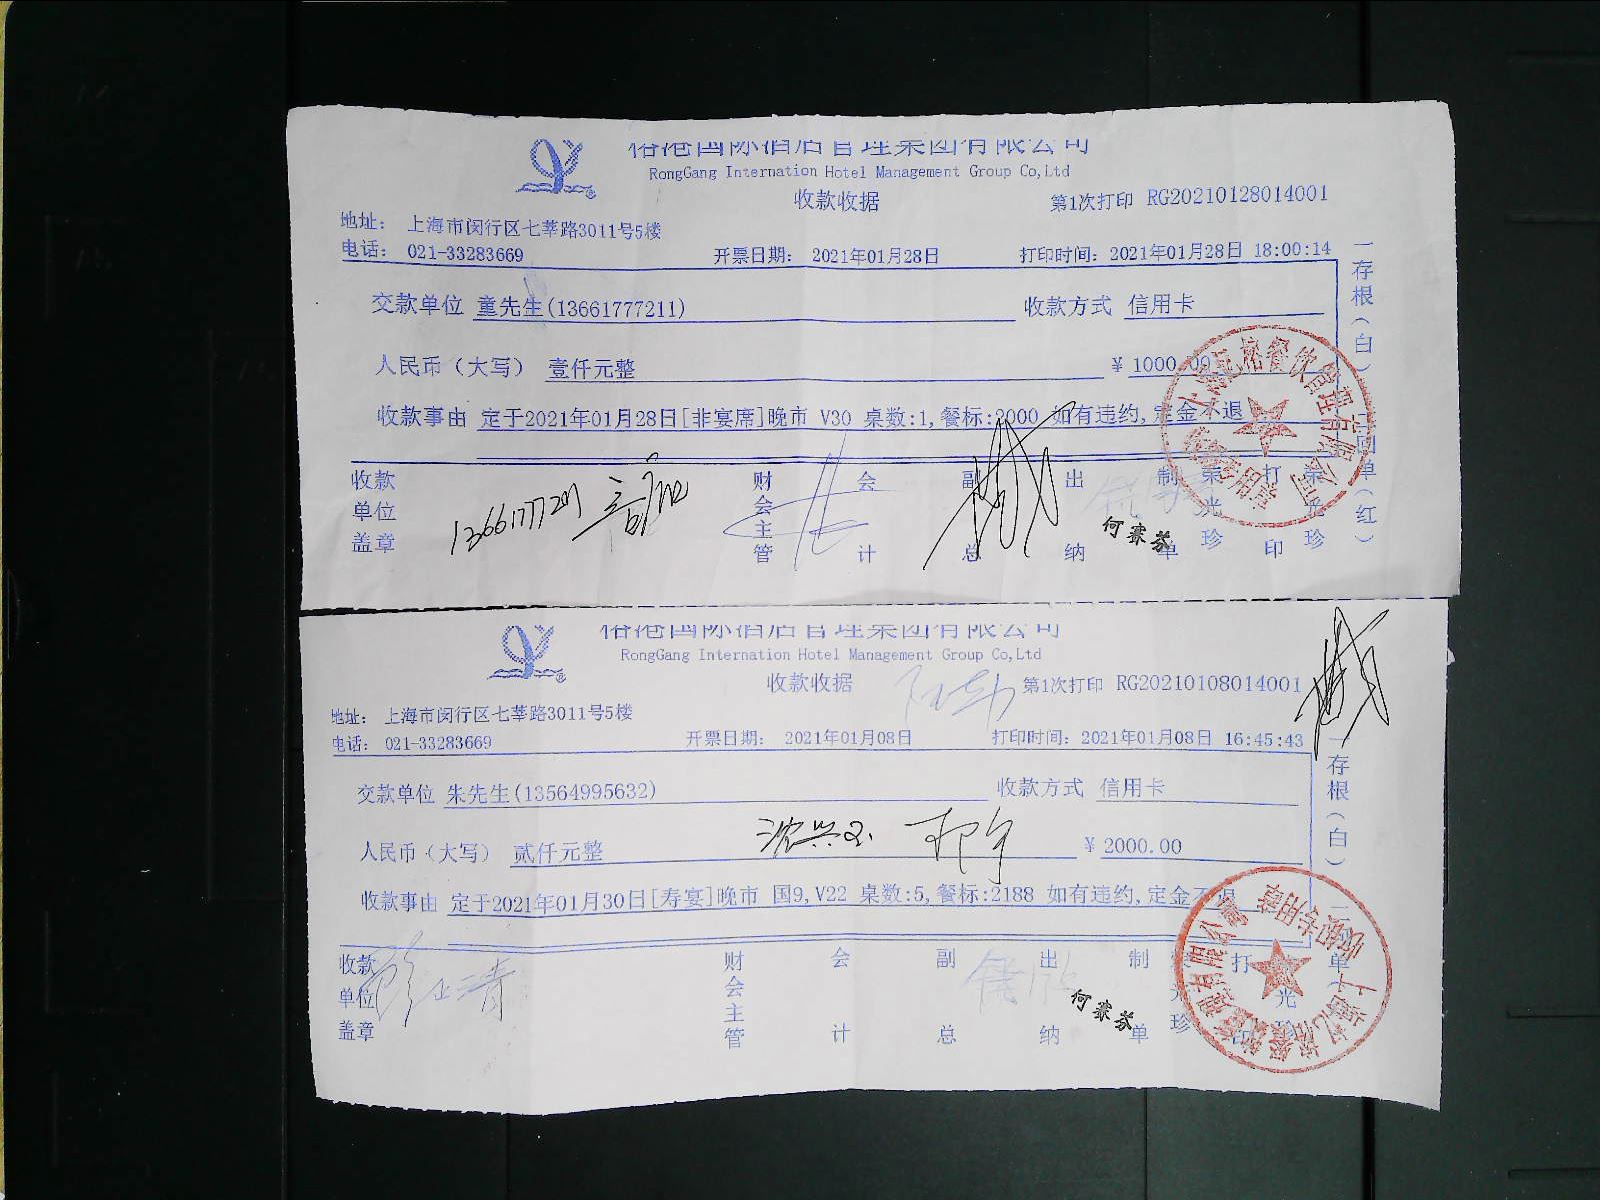 裕港国际酒店管理集团有限公司
RongGang Internation Hotel Management Group Co,Ltd
收款收据
第1次打印 RG20210128014001
地址： 上海市闵行区七莘路3011号5楼
电话： 021-33283669 开票日期： 2021年01月28日 打印时间：2021年01月28日 18:00:14
交款单位 童先生(13661777211) 收款方式 信用卡
人民币（大写） 壹仟元整 ¥ 1000.00
收款事由 定于2021年01月28日[非宴席]晚市 V30 桌数:1,餐标:2000 如有违约,定金不退
一存根（白） 二回单（红）
收款单位盖章 13661777211 财会主管 会计 副总 出纳 制单 荣光珍 打印 荣光珍
何赛芬
裕港国际酒店管理集团有限公司
RongGang Internation Hotel Management Group Co,Ltd
收款收据
第1次打印 RG20210108014001
地址： 上海市闵行区七莘路3011号5楼
电话： 021-33283669 开票日期： 2021年01月08日 打印时间：2021年01月08日 16:45:43
交款单位 朱先生(13564995632) 收款方式 信用卡
人民币（大写） 贰仟元整 ¥ 2000.00
收款事由 定于2021年01月30日[寿宴]晚市 国9,V22 桌数:5,餐标:2188 如有违约,定金不退
存根（白）
收款单位盖章 财会主管 会计 副总 出纳 制单 打印
何赛芬